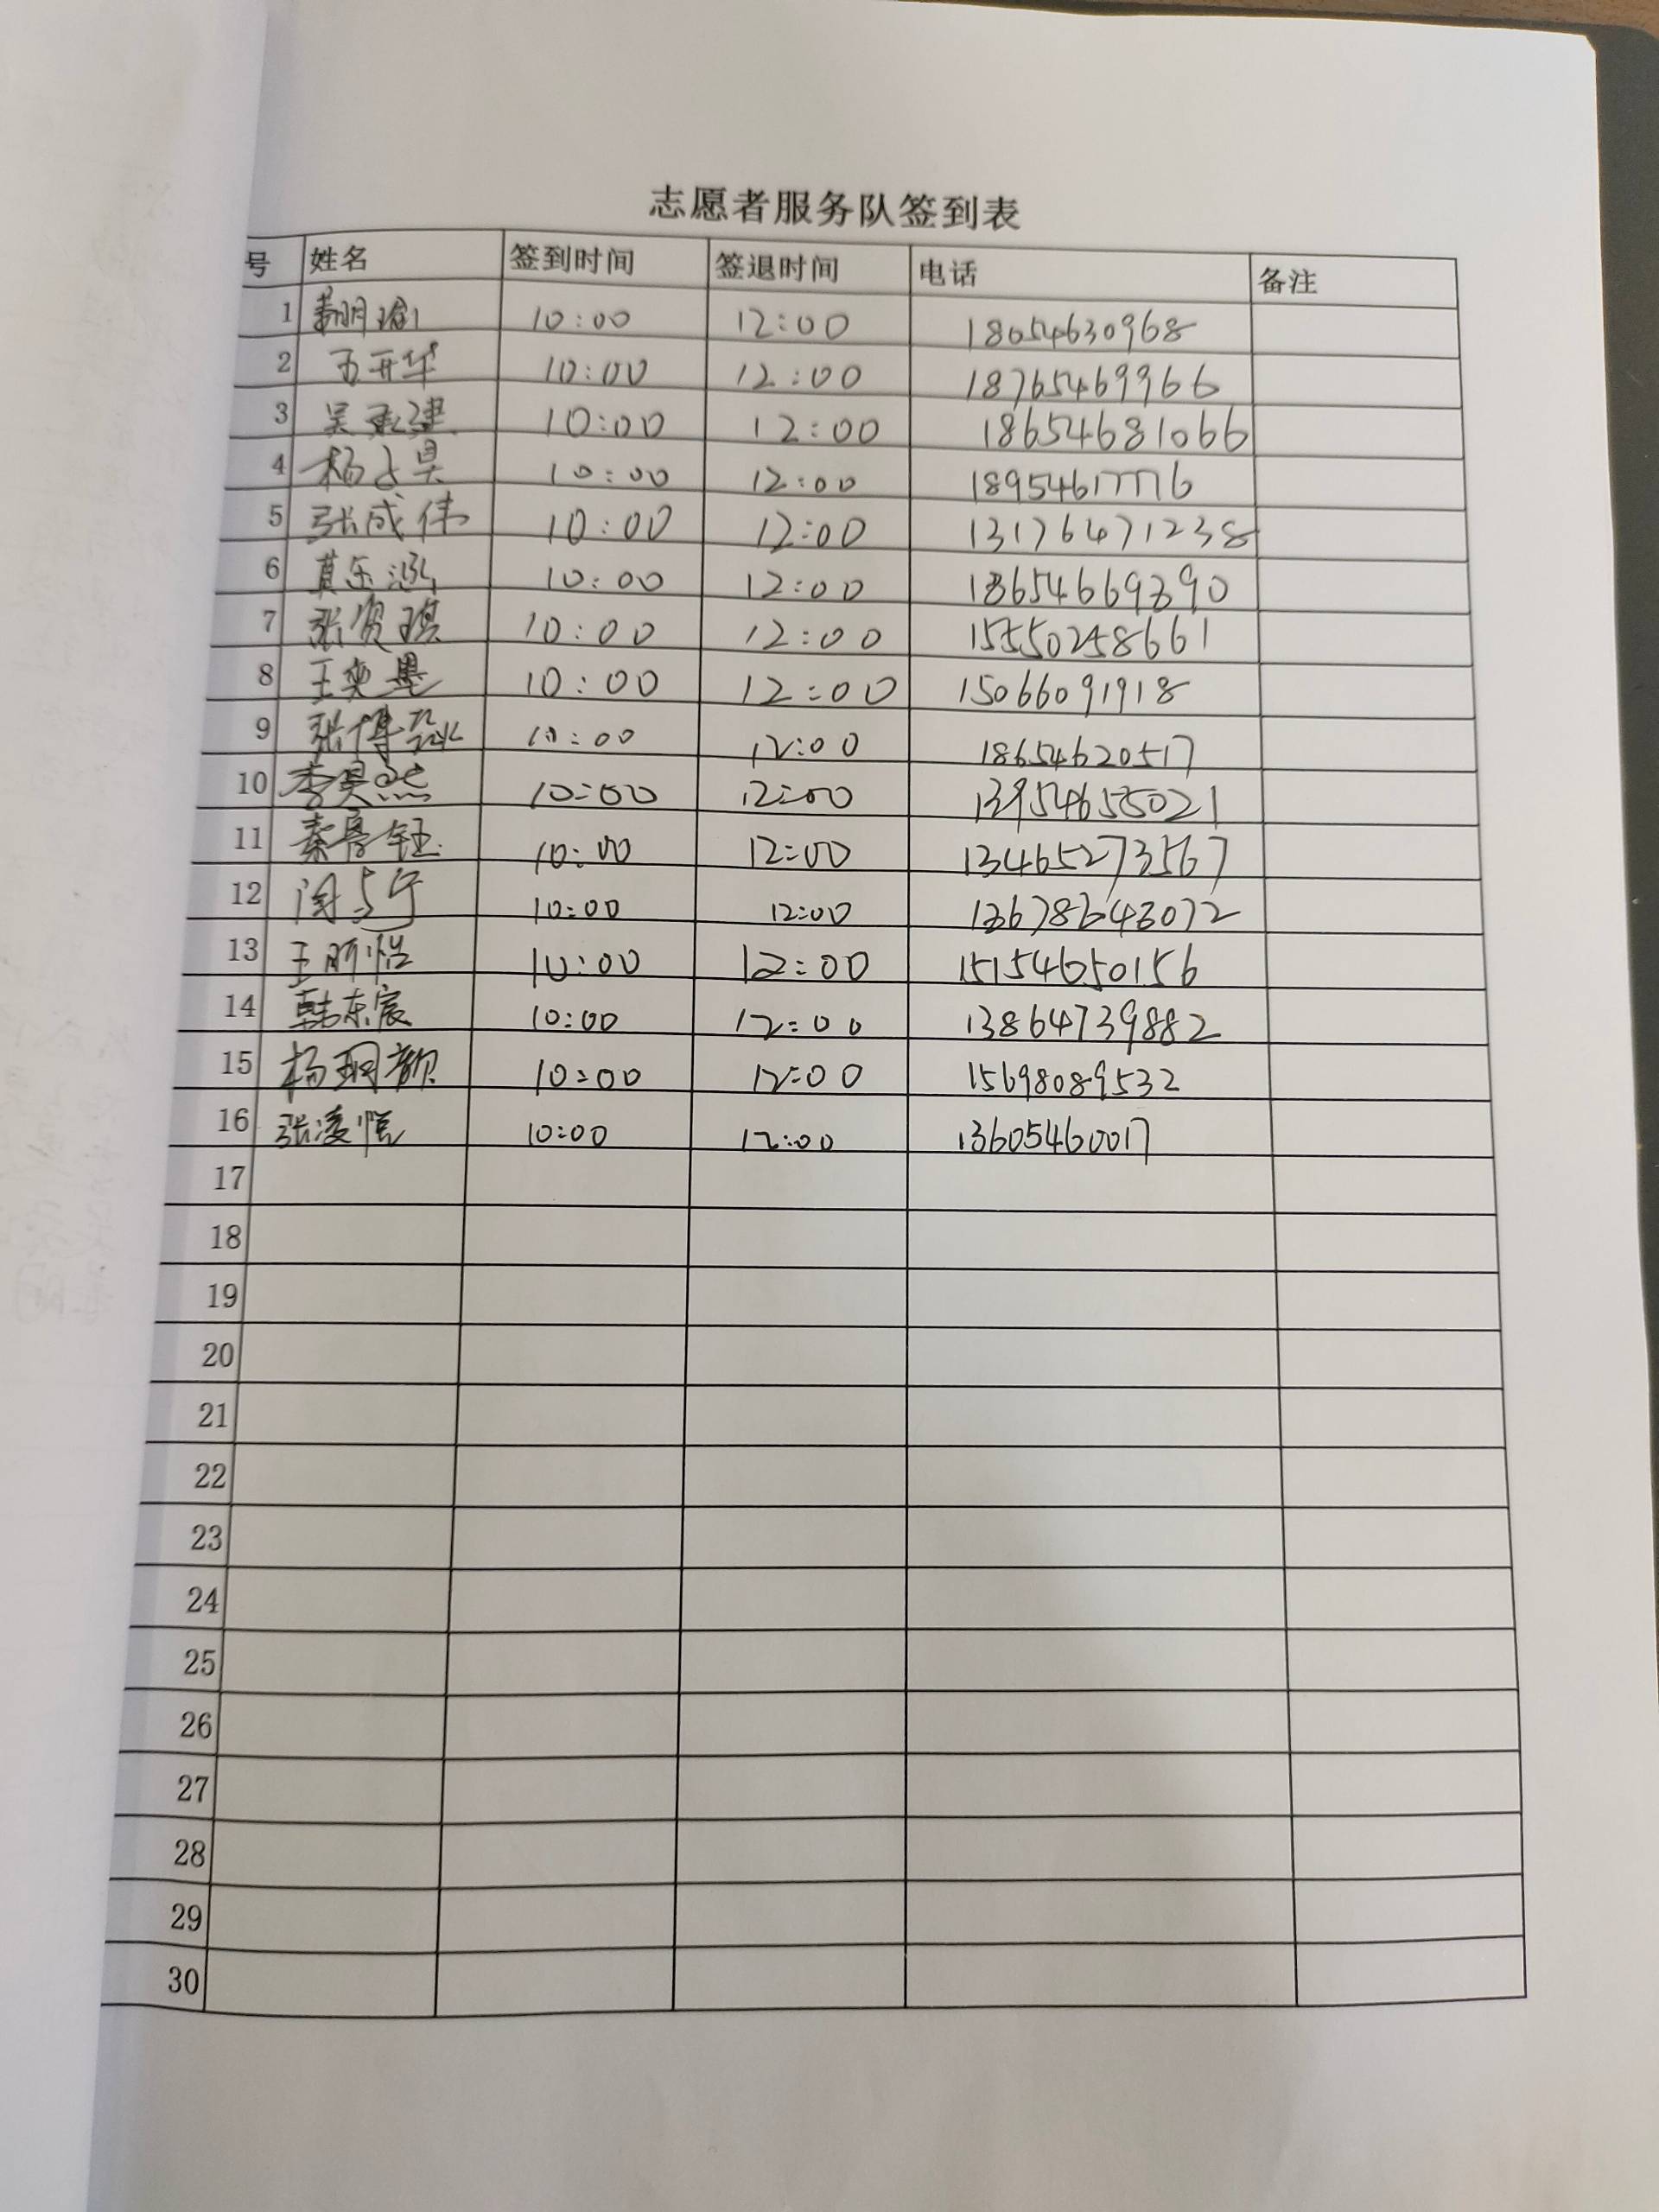 志愿者服务队签到表
号 姓名 签到时间 签退时间 电话 备注
1 10:00 12:00 18654630968
2 王开华 10:00 12:00 18765469966
3 吴承建 10:00 12:00 18654681066
4 杨 昊 10:00 12:00 18954617776
5 张成伟 10:00 12:00 13176471238
6 10:00 12:00 18654669390
7 张 琪 10:00 12:00 15550258661
8 王奕墨 10:00 12:00 15066091918
9 张博 10:00 12:00 18654620517
10 李昊然 10:00 12:00 13954655021
11 秦 钰 10:00 12:00 13465273567
12 闫与宁 10:00 12:00 13678643072
13 王昕怡 10:00 12:00 15154650156
14 韩东宸 10:00 12:00 13864739882
15 杨玥颜 10:00 12:00 15698089532
16 张凌恺 10:00 12:00 13605460017
17
18
19
20
21
22
23
24
25
26
27
28
29
30